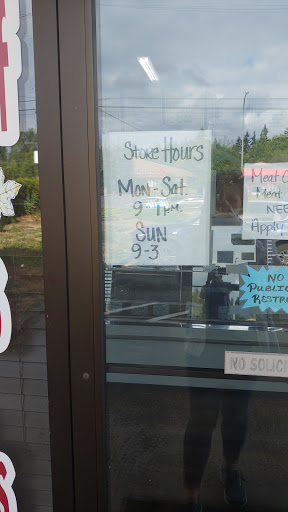 Store Hours
Mon-Sat.
9
SUN
9-3
Meat C
Meat
NEE
Apply
NO
PUBLIC
RESTR
NO SOLICI